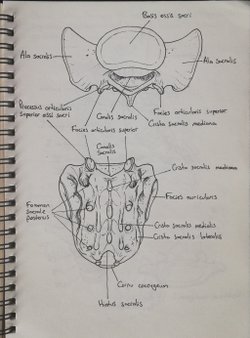 Basis ossis sacri
Ala sacralis
Ala sacralis
Processus articularis
superior ossi sacri
Canalis sacralis
Facies articularis superior
Facies articularis superior
Crista sacralis mediana
Canalis
sacralis
Crista sacralis mediana
Facies auricularis
Foramen
sacrale
posterius
Crista sacralis medialis
Crista sacralis lateralis
Cornu coccygeum
Hiatus sacralis